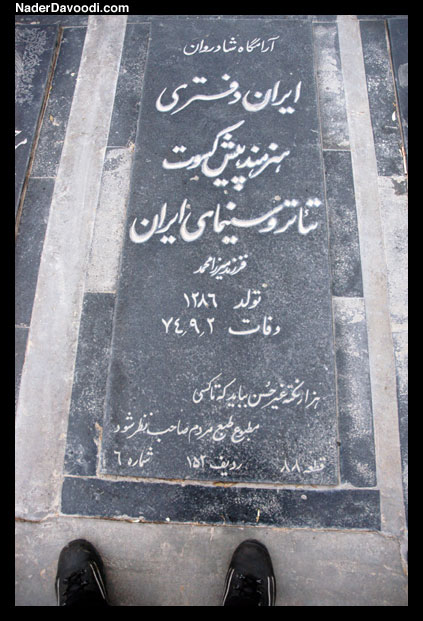 NaderDavoodi.com
آرامگاه شادروان
ایران دفتری
هنرمند پیش کسوت
تئاتر و سینمای ایران
فرزند میرزا محمد
تولد ۱۲۸۶
وفات ۷۴٫۹٫۲
هزار نکته غیر حسن بباید که تا کسی
مطبوع طبع مردم صاحب نظر شود
قطعه ۸۸ ردیف ۱۵۲ شماره ۶